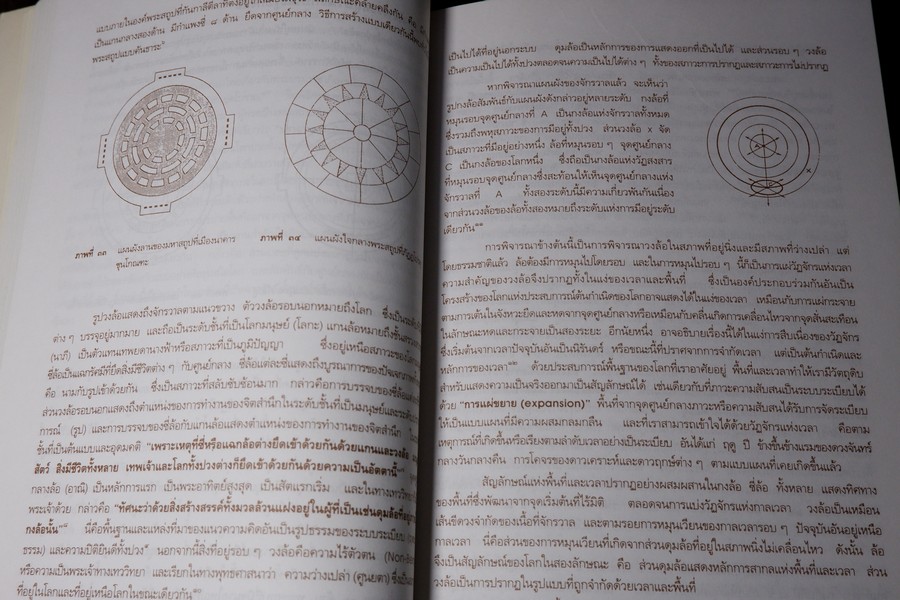 เป็นแกนกลางสองด้าน มีกำแพงซี่ ๘ ด้าน ยึดจากศูนย์กลาง วิธีการสร้างแบบเดียวกันนี้
พระสถูปแบบคันธาระ
ภาพที่ ๓๓ แผนผังลานของมหาสถูปที่เมืองนาคาร
ชุนโกณฑะ
ภาพที่ ๓๔ แผนผังใจกลางพระสถูปที่
รูปวงล้อแสดงถึงจักรวาลตามแนวขวาง ตัววงล้อรอบนอกหมายถึงโลก ซึ่งเป็น
ต่าง ๆ บรรจุอยู่มากมาย และถือเป็นระดับชั้นที่เป็นโลกมนุษย์ (โลกะ) แกนล้อหมายถึงชั้น
(นาภี) เป็นตัวแทนเทพยดานางฟ้าหรือสภาวะที่เป็นภูมิปัญญา ซึ่งอยู่เหนือสภาวะของ
ซี่ล้อเป็นแถวรัศมีที่ยึดสิ่งมีชีวิตต่าง ๆ กับศูนย์กลาง ซี่ล้อแต่ละซี่แสดงถึงบูรณาการของ
คือ นามกับรูปเข้าด้วยกัน ซึ่งเป็นสภาวะที่สลับซับซ้อนมาก กล่าวคือการบรรจบของซี่ล้อ
ส่วนวงล้อรอบนอกแสดงถึงตำแหน่งของการทำงานของจิตสำนึกในระดับชั้นที่เป็นมนุษย์และ
การณ์ (รูป) และการบรรจบของซี่ล้อกับแกนล้อแสดงตำแหน่งของการทำงานของจิตสำนึก
ชั้นที่เป็นต้นแบบและอุดมคติ "เพราะเหตุที่ซี่หรือแฉกล้อต่างยึดเข้าด้วยกันด้วยแกนและวงล้อ
สัตว์ สิ่งมีชีวิตทั้งหลาย เทพเจ้าและโลกทั้งปวงต่างก็ยึดเข้าด้วยกันด้วยความเป็นอัตตานี้"
กลางล้อ (อาณิ) เป็นหลักการแรก เป็นพระอาทิตย์สูงสุด เป็นสัตแรกเริ่ม และในทางเทววิทยา
พระเจ้าด้วย กล่าวคือ "ทัศนะว่าด้วยสิ่งสร้างสรรค์ทั้งมวลล้วนแฝงอยู่ในผู้ที่เป็นเช่นดุมล้อที่อยู่
กงล้อนั้น" นี่คือพื้นฐานและแหล่งที่มาของแนวความคิดอันเป็นรูปธรรมของระบบระเบียบ
ธรรม) และความปิติยินดีทั้งปวง นอกจากนี้สิ่งที่อยู่รอบ ๆ วงล้อคือความไร้ตัวตน
หรือความเป็นพระเจ้าทางเทววิทยา และเรียกในทางพุทธศาสนาว่า ความว่างเปล่า (ศูนยตา)
ที่อยู่ในโลกและที่อยู่เหนือโลกในขณะเดียวกัน
เป็นไปได้ที่อยู่นอกระบบ ดุมล้อเป็นหลักการของการแสดงออกที่เป็นไปได้ และส่วนรอบ ๆ วงล้อ
เป็นความเป็นไปได้ทั้งปวงตลอดจนความเป็นไปได้ต่าง ๆ ทั้งของสภาวะการปรากฏและสภาวะการไม่ปรากฏ
หากพิจารณาแผนผังของจักรวาลแล้ว จะเห็นว่า
รูปกงล้อสัมพันธ์กับแผนผังดังกล่าวอยู่หลายระดับ กงล้อที่
หมุนรอบจุดศูนย์กลางที่ A เป็นกงล้อแห่งจักรวาลทั้งหมด
ซึ่งรวมถึงพหุสภาวะของการมีอยู่ทั้งปวง ส่วนวงล้อ x จัด
เป็นสภาวะที่มีอยู่อย่างหนึ่ง ล้อที่หมุนรอบ ๆ จุดศูนย์กลาง
C เป็นกงล้อของโลกหนึ่ง ซึ่งถือเป็นกงล้อแห่งวัฏสงสาร
ที่หมุนรอบจุดศูนย์กลางซึ่งสะท้อนให้เห็นจุดศูนย์กลางแห่ง
จักรวาลที่ A ทั้งสองระดับนี้มีความเกี่ยวพันกันเนื่อง
จากส่วนวงล้อของล้อทั้งสองหมายถึงระดับแห่งการมีอยู่ระดับ
เดียวกัน
x
การพิจารณาข้างต้นนี้เป็นการพิจารณาวงล้อในสภาพที่อยู่นิ่งและมีสภาพที่ว่างเปล่า แต่
โดยธรรมชาติแล้ว ล้อต้องมีการหมุนไปโดยรอบ และในการหมุนไปรอบ ๆ นี้ก็เป็นการแผ่วัฏจักรแห่งเวลา
ความสำคัญของวงล้อจึงปรากฏทั้งในแง่ของเวลาและพื้นที่ ซึ่งเป็นองค์ประกอบร่วมกันอันเป็น
โครงสร้างของโลกแห่งประสบการณ์ต้นกำเนิดของโลกอาจแสดงได้ในแง่ของเวลา เหมือนกับการแผ่กระจาย
ตามการเต้นในจังหวะยืดและหดจากจุดศูนย์กลางหรือเหมือนกับคลื่นเกิดการเคลื่อนไหวจากจุดสั่นสะเทือน
ในลักษณะหดและกระจายเป็นสองระยะ อีกนัยหนึ่ง อาจอธิบายเรื่องนี้ได้ในแง่การสืบเนื่องของวัฏจักร
ซึ่งเริ่มต้นจากเวลาปัจจุบันอันเป็นนิรันดร์ หรือขณะนี้ที่ปราศจากการจำกัดเวลา แต่เป็นต้นกำเนิดและ
หลักการของเวลา ด้วยประสบการณ์พื้นฐานของโลกที่เราอาศัยอยู่ พื้นที่และเวลาทำให้เรามีวัตถุดิบ
สำหรับแสดงความเป็นจริงออกมาเป็นสัญลักษณ์ได้ เช่นเดียวกับที่ภาวะความสับสนเป็นระบบระเบียบได้
ด้วย "การแผ่ขยาย (expansion)" พื้นที่จากจุดศูนย์กลางภาวะหรือความสับสนได้รับการจัดระเบียบ
ให้เป็นแบบแผนที่มีความผสมกลมกลืน และที่เราสามารถเข้าใจได้ด้วยวัฏจักรแห่งเวลา คือตาม
เหตุการณ์ที่เกิดขึ้นหรือเรียงตามลำดับเวลาอย่างเป็นระเบียบ อันได้แก่ ฤดู ปี ข้างขึ้นข้างแรมของดวงจันทร์
กลางวันกลางคืน การโคจรของดาวเคราะห์และดาวฤกษ์ต่าง ๆ ตามแบบแผนที่เคยเกิดขึ้นแล้ว
สัญลักษณ์แห่งพื้นที่และเวลาปรากฏอย่างผสมผสานในกงล้อ ซี่ล้อ ทั้งหลาย แสดงทิศทาง
ของพื้นที่ซึ่งพัฒนาจากจุดเริ่มต้นที่ไร้มิติ ตลอดจนการแบ่งวัฏจักรแห่งกาลเวลา วงล้อเป็นเหมือน
เส้นขีดวงจำกัดของเนื้อที่จักรวาล และตามรอยการหมุนเวียนของกาลเวลารอบ ๆ ปัจจุบันอันอยู่เหนือ
กาลเวลา นี่คือส่วนของการหมุนเวียนที่เกิดจากส่วนดุมล้อที่อยู่ในสภาพนิ่งไม่เคลื่อนไหว ดังนั้น ล้อ
จึงเป็นสัญลักษณ์ของโลกในสองลักษณะ คือ ส่วนดุมล้อแสดงหลักการสากลแห่งพื้นที่และเวลา ส่วน
วงล้อเป็นการปรากฏในรูปแบบที่ถูกจำกัดด้วยเวลาและพื้นที่